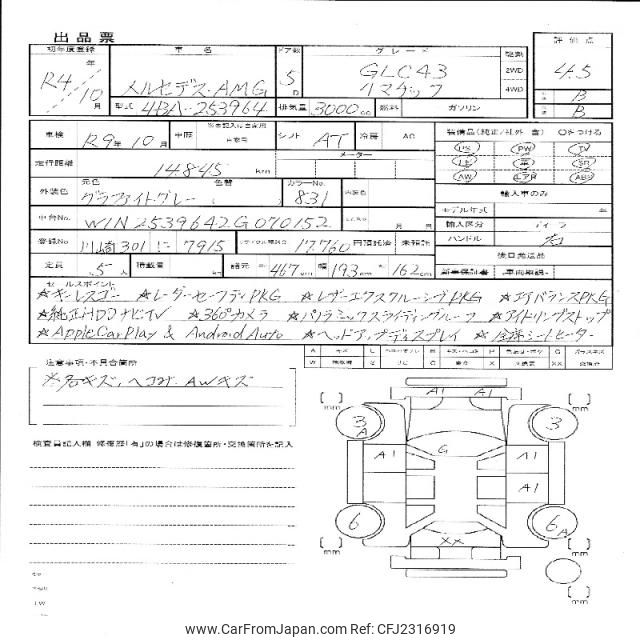 出品票
初年度登録 車名 ドア数 グレード 駆動 評価点
R4年 メルセデス・AMG 5D GLC43 2WD 4.5
10月 クマチック 4WD B
型式 4BA-253964 排気量 3000cc 燃料 ガソリン B
車検 R9年10月 車歴 シフト AT 冷房 AC 装備品(純正/社外 含) Oをつける
走行距離 メーター PS PW TV
14845 Km LE 革 SR
元色 色替 カラーNo. AW エアB ABS
外装色 グラファイトグレー ( ) 831 輸入車のみ
モデル年式 年
車台No. W1N2539642G070152 月 日 輸入区分
登録No. 川崎 301 に 7915 リサイクル預託金 17,760 円預託済 未預託 ハンドル 右
定員 5人 積載量 諸元 長 467cm 幅 193cm 高 162cm 新車保証書 車両取説
セールスポイント
☆キーレスゴー ☆レーダーセーフティPKG ☆レザーエクスクルーシブPKG
☆純正HDDナビTV ☆360°カメラ ☆パノラミックスライディングルーフ ☆アイドリングストップ
☆AppleCarPlay & Android Auto ☆ヘッドアップディスプレイ ☆全席シートヒーター
注意事項・不具合箇所
AWキズ
検査員記入欄 修復歴「有」の場合は修復箇所・交換箇所を記入
[ ] mm [ ] mm
A1 A1
3 A 3
G
A1 A1
A1
6 6 A
XX
[ ] mm [ ] mm
[ ] mm
CarFromJapan.com CFJ2316919